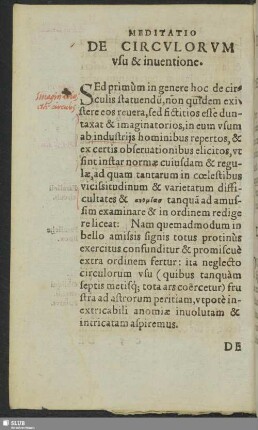 MEDITATIO
DE CIRCVLORVM
vsu & inuentione.
SEd primùm in genere hoc de cir-
culis statuendũ, non quidem exi-
stere eos reuera, sed fictitios esse dun-
taxat & imaginatorios, in eum vsum
ab industrijs hominibus repertos, &
ex certis obseruationibus elicitos, vt
sint instar normæ cuiusdam & regu-
læ, ad quam tantarum in cœlestibus
vicissitudinum & varietatum diffi-
cultates & tanquã ad amus-
sim examinare & in ordinem redige
re liceat: Nam quemadmodum in
bello amissis signis totus protinùs
exercitus confunditur & promiscuè
extra ordinem fertur: ita neglecto
circulorum vsu (quibus tanquàm
septis metisq; tota ars coërcetur) fru
stra ad astrorum peritiam, vtpotè in-
extricabili anomiæ inuolutam &
intricatam aspiremus.
DE
SLUB